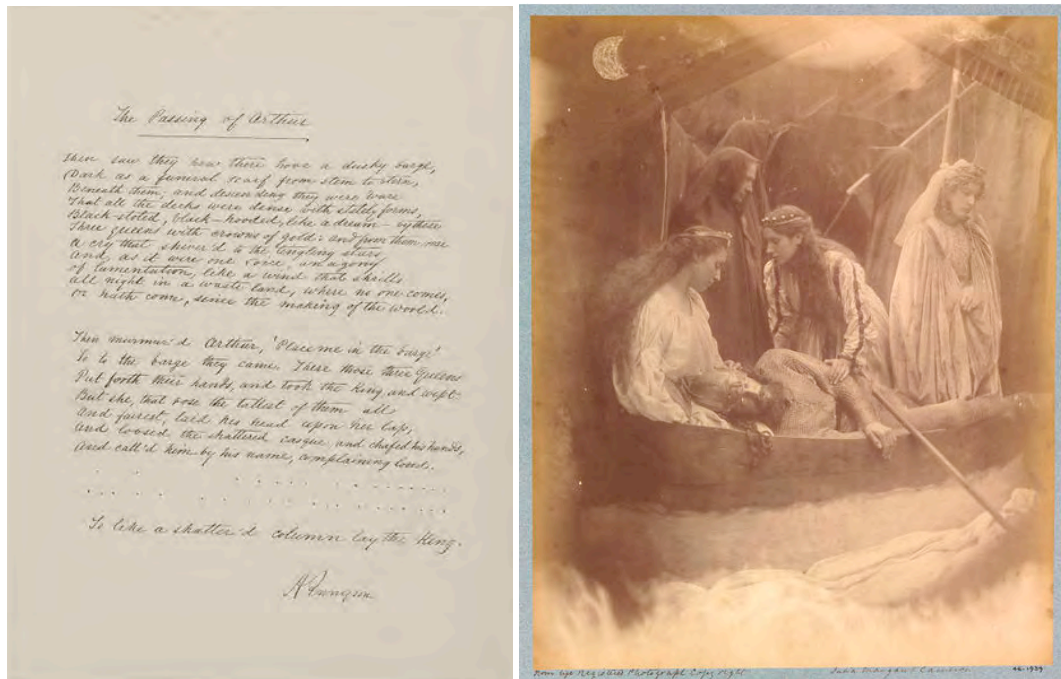 The Passing of Arthur
Then saw they how there hove a dusky barge,
Dark as a funeral scarf from stem to stern,
Beneath them; and descending they were ware
That all the decks were dense with stately forms,
Black-stoled, black-hooded, like a dream - by these
Three queens with crowns of gold: and from them rose
a cry that shiver'd to the tingling stars
and, as it were one voice, an agony
of lamentation, like a wind that shrills
all night in a waste land, where no one comes,
or hath come, since the making of the world.
Then murmur'd Arthur, 'Place me in the barge'
So to the barge they came. There those three Queens
Put forth their hands, and took the King, and wept.
But she, that rose the tallest of them all
and fairest, laid his head upon her lap,
and loosed the shattered casque, and chafed his hands,
and call'd him by his name, complaining loud.
So like a shatter'd column lay the King.
A Tennyson
From Life Registered Photograph Copyright
Julia Margaret Cameron
46-1939